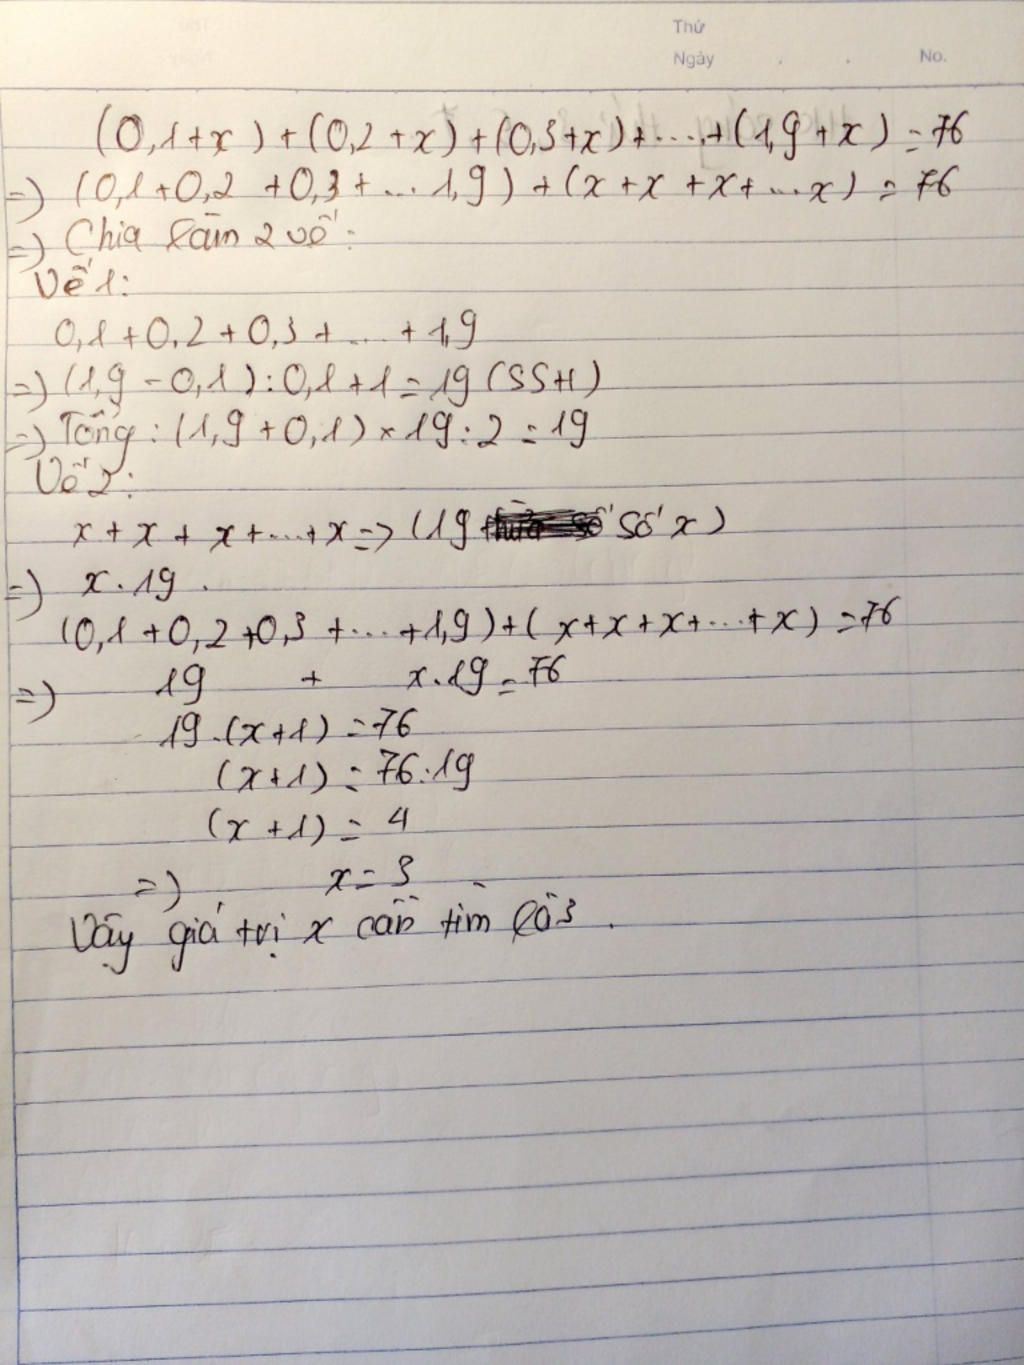 Thứ
Ngày . . No.
(0,1+x) + (0,2+x) + (0,3+x) + ... + (1,9+x) = 76
=) (0,1+0,2 +0,3+ ... 1,9) + (x+x +x+ ... x) = 76
=) Chia làm 2 vế:
Vế 1:
0,1+0,2+0,3+ ... +1,9
=) (1,9 - 0,1) : 0,1+1 = 19 (SSH)
=) Tổng : (1,9+0,1) × 19 : 2 = 19
Vế 2:
x + x + x + ... + x => (19 số x)
=) x . 19 .
(0,1+0,2+0,3 + ... +1,9) + (x+x+x+ ... +x) = 76
=) 19 + x.19 = 76
19.(x+1) = 76
(x+1) = 76:19
(x+1) = 4
=) x = 3
Vậy giá trị x cần tìm là 3 .